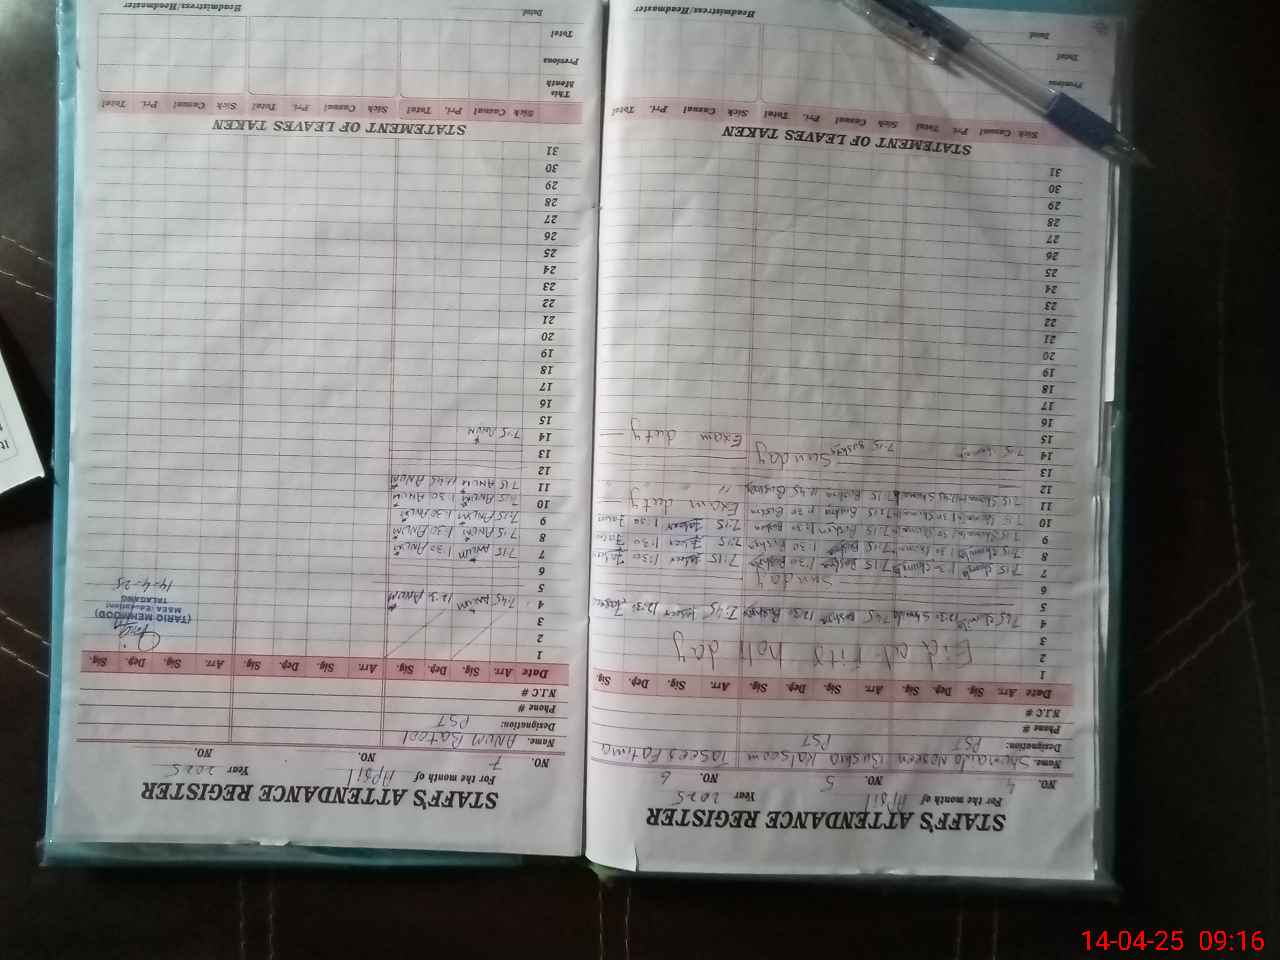 STAFF'S ATTENDANCE REGISTER
For the month of April Year 2025
NO. 4 NO. 5 NO. 6
Name. Noseen Bushra Kalsoom Taseer Fatima
Designation: PST PST
Phone #
N.I.C #
Date Arr. Sig. Dep. Sig. Arr. Sig. Dep. Sig. Arr. Sig. Dep. Sig.
1
2 Eid ul Fitr holiday
3
4 7:45 12:30 7:45 12:30 Bushra 7:45 12:30
5
6 Sunday
7 7:15 1:30 7:15 1:30 Bushra 7:15 1:30
8 7:15 1:30 7:15 1:30 7:15 1:30
9 7:15 1:30 7:15 Bushra 1:30 Bushra 7:15 1:30
10 7:15 1:30 7:15 Bushra 1:30 Bushra Exam duty
11 7:15 11:45 7:15 Bushra 11:45 Bushra "
12
13 Sunday
14 7:15 7:15 Bushra Exam duty
15
16
17
18
19
20
21
22
23
24
25
26
27
28
29
30
31
STATEMENT OF LEAVES TAKEN
Sick Casual Pri. Total Sick Casual Pri. Total Sick Casual Pri. Total
Previous
Total
Dated Headmistress/Headmaster
STAFF'S ATTENDANCE REGISTER
For the month of April Year 2025
NO. 7 NO. NO.
Name. Anum Batool
Designation: PST
Phone #
N.I.C #
Date Arr. Sig. Dep. Sig. Arr. Sig. Dep. Sig. Arr. Sig. Dep. Sig.
1
2
3
(TARIQ MEHMOOD)
M&EA (Education)
TALAGANG
14-4-25
4 7:45 ANUM 12:30 ANUM
5
6
7 7:15 ANUM 1:30 ANUM
8 7:15 ANUM 1:30 ANUM
9 7:15 ANUM 1:30 ANUM
10 7:15 ANUM 1:30 ANUM
11 7:15 ANUM 11:45 ANUM
12
13
14 7:15 ANUM
15
16
17
18
19
20
21
22
23
24
25
26
27
28
29
30
31
STATEMENT OF LEAVES TAKEN
Sick Casual Pri. Total Sick Casual Pri. Total Sick Casual Pri. Total
This Month
Previous
Total
Dated Headmistress/Headmaster
14-04-25 09:16